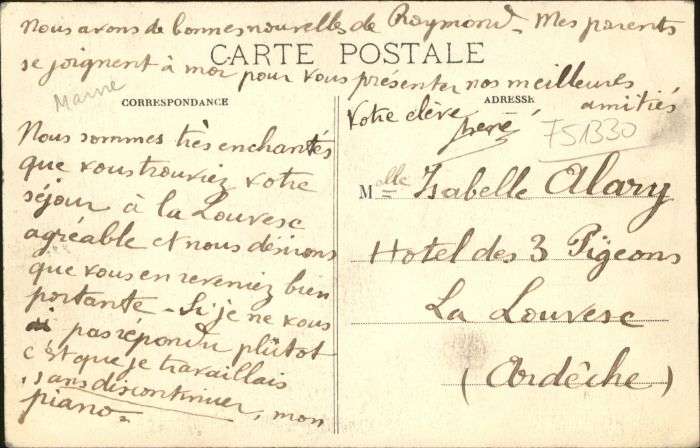 Nous avons de bonnes nouvelles de Raymond. Mes parents
CARTE POSTALE
se joignent à moi pour vous présenter nos meilleures
amitiés
Marne
CORRESPONDANCE
ADRESSE
Votre élève
René
751330
Nous sommes très enchantés
que vous trouviez votre
séjour à la Louvesc
agréable et nous désirons
que vous en reveniez bien
portante - Si je ne vous
ai pas repondu plûtot
c'est que je travaillais
sans discontinuer, mon
piano.
Melle Isabelle Alary
Hotel des 3 Pigeons
La Louvesc
(Ardêche)